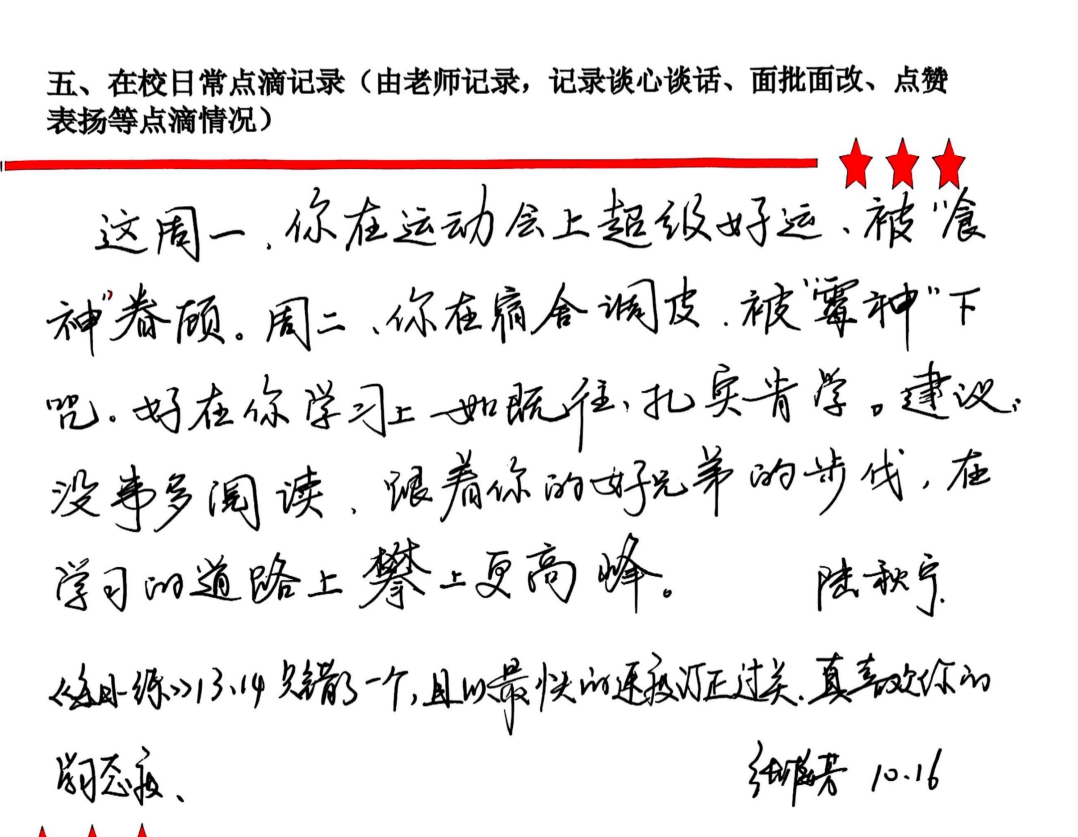 五、在校日常点滴记录（由老师记录，记录谈心谈话、面批面改、点赞
表扬等点滴情况）
这周一，你在运动会上超级好运、被“食
神”眷顾。周二、你在宿舍调皮，被“霉神”下
咒。好在你学习上一如既往，扎实肯学。建议：
没事多阅读，跟着你的好兄弟的步伐，在
学习的道路上攀上更高峰。 陆秋宁
《每日一练》13.14只错了一个，且以最快的速度订正过关.真喜欢你的
学习态度、 10.16